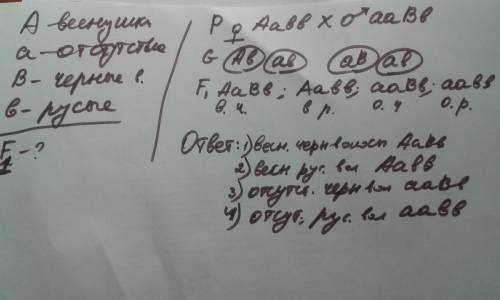 А - веснушки
а - отсутствие
В - черные в.
в - русые
F1 - ?
P ♀ Аавв х ♂ ааВв
G Ав ав аВ ав
F1 АаВв; Аавв; ааВв; аавв
в. ч. в р. о. ч о. р.
Ответ: 1) весн. черн волосы АаВв
2) весн рус. вол Аавв
3) отсутс. черн вол ааВв
4) отсут. рус. вол аавв